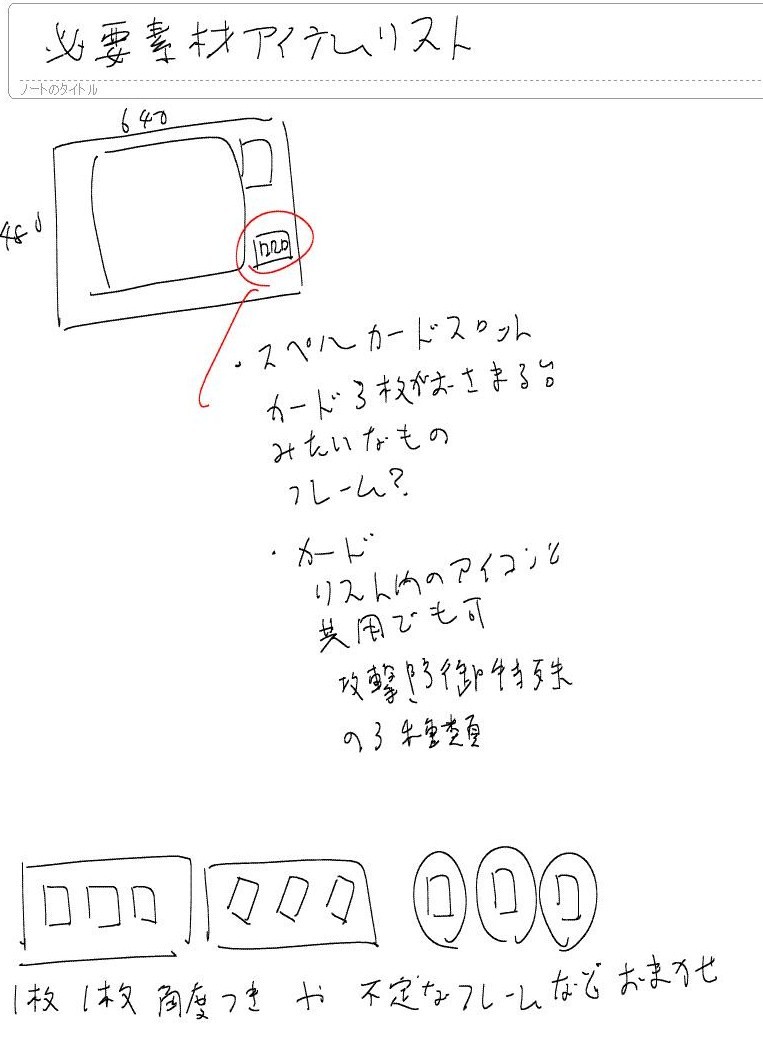 必要素材アイテムリスト
ノートのタイトル
640
480
・スペルカードスロット
カード3枚がおさまる台
みたいなもの
フレーム?
・カード
リスト内のアイコンと
共用でも可
攻撃防御特殊
の3種類
1枚1枚角度つき や 不定なフレームなど おまかせ